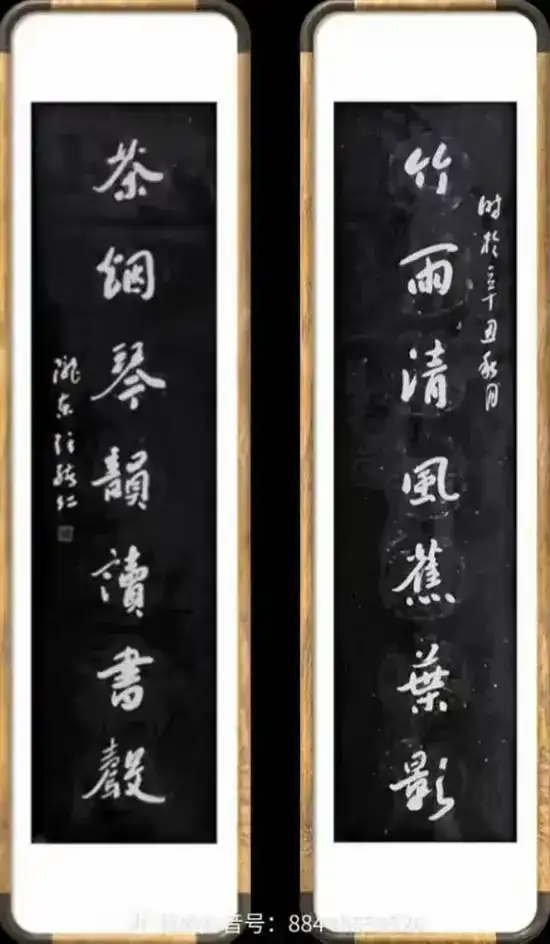 竹雨清風蕉葉影
時於辛丑秋月
茶烟琴韻讀書聲
隴東
仁
音号：884